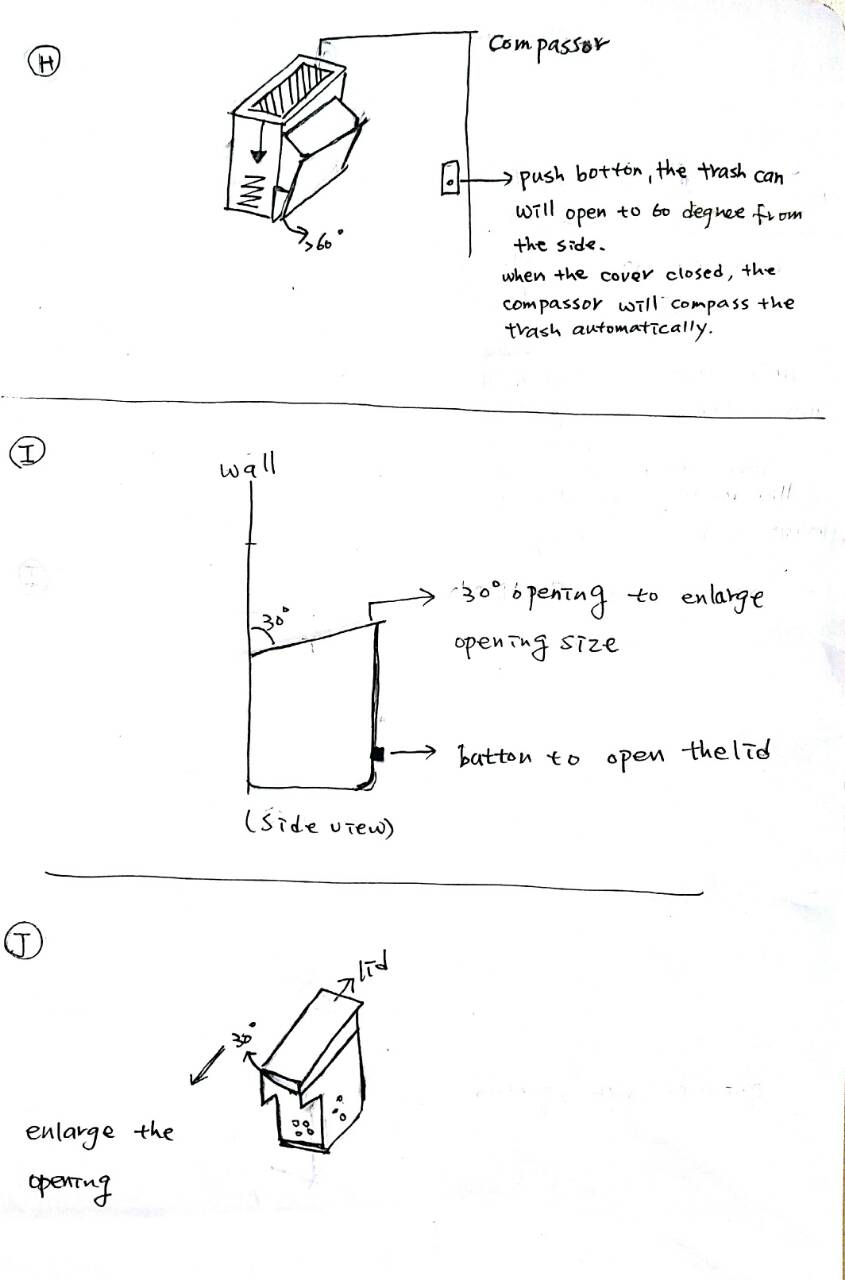 H
Compassor
push botton, the trash can
will open to 60 degree from
the side.
when the cover closed, the
compassor will compass the
trash automatically.
>60°
I
wall
30°
30° opening to enlarge
opening size
button to open the lid
(side view)
J
lid
30°
enlarge the
opening